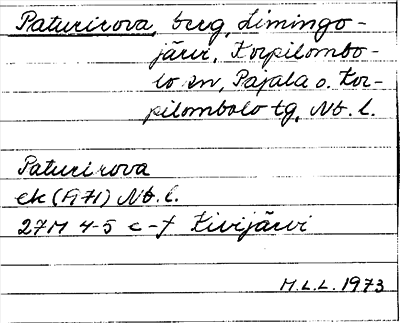 Paturirova, berg, Limingo-
järvi, Korpilombo-
lo sn, Pajala o. Kor-
pilombolo tg, Nb. l.
Paturirova
ek (Fj 71) Nb. l.
27M 4-5 c-f Kivijärvi
M.L.L. 1973